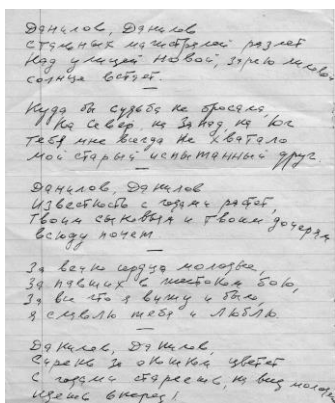 Данилов, Данилов
Стальных магистралей разлёт
Над улицей Новой, зарёю
солнце встаёт.
—
Куда бы судьба не бросала,
На Север, на Запад, на Юг
Тебя мне всегда не хватало
Мой старый испытанный друг.
—
Данилов, Данилов
Известность с годами растёт,
Твоим сыновьям и твоим дочерям
всюду почёт.
—
За вечно сердца молодые,
За павших в жестоком бою,
За все что я вижу и было,
я славлю тебя и люблю.
—
Данилов, Данилов,
Сирень за окошком цветёт
С годами стареешь, на вид молод
идёшь вперёд!